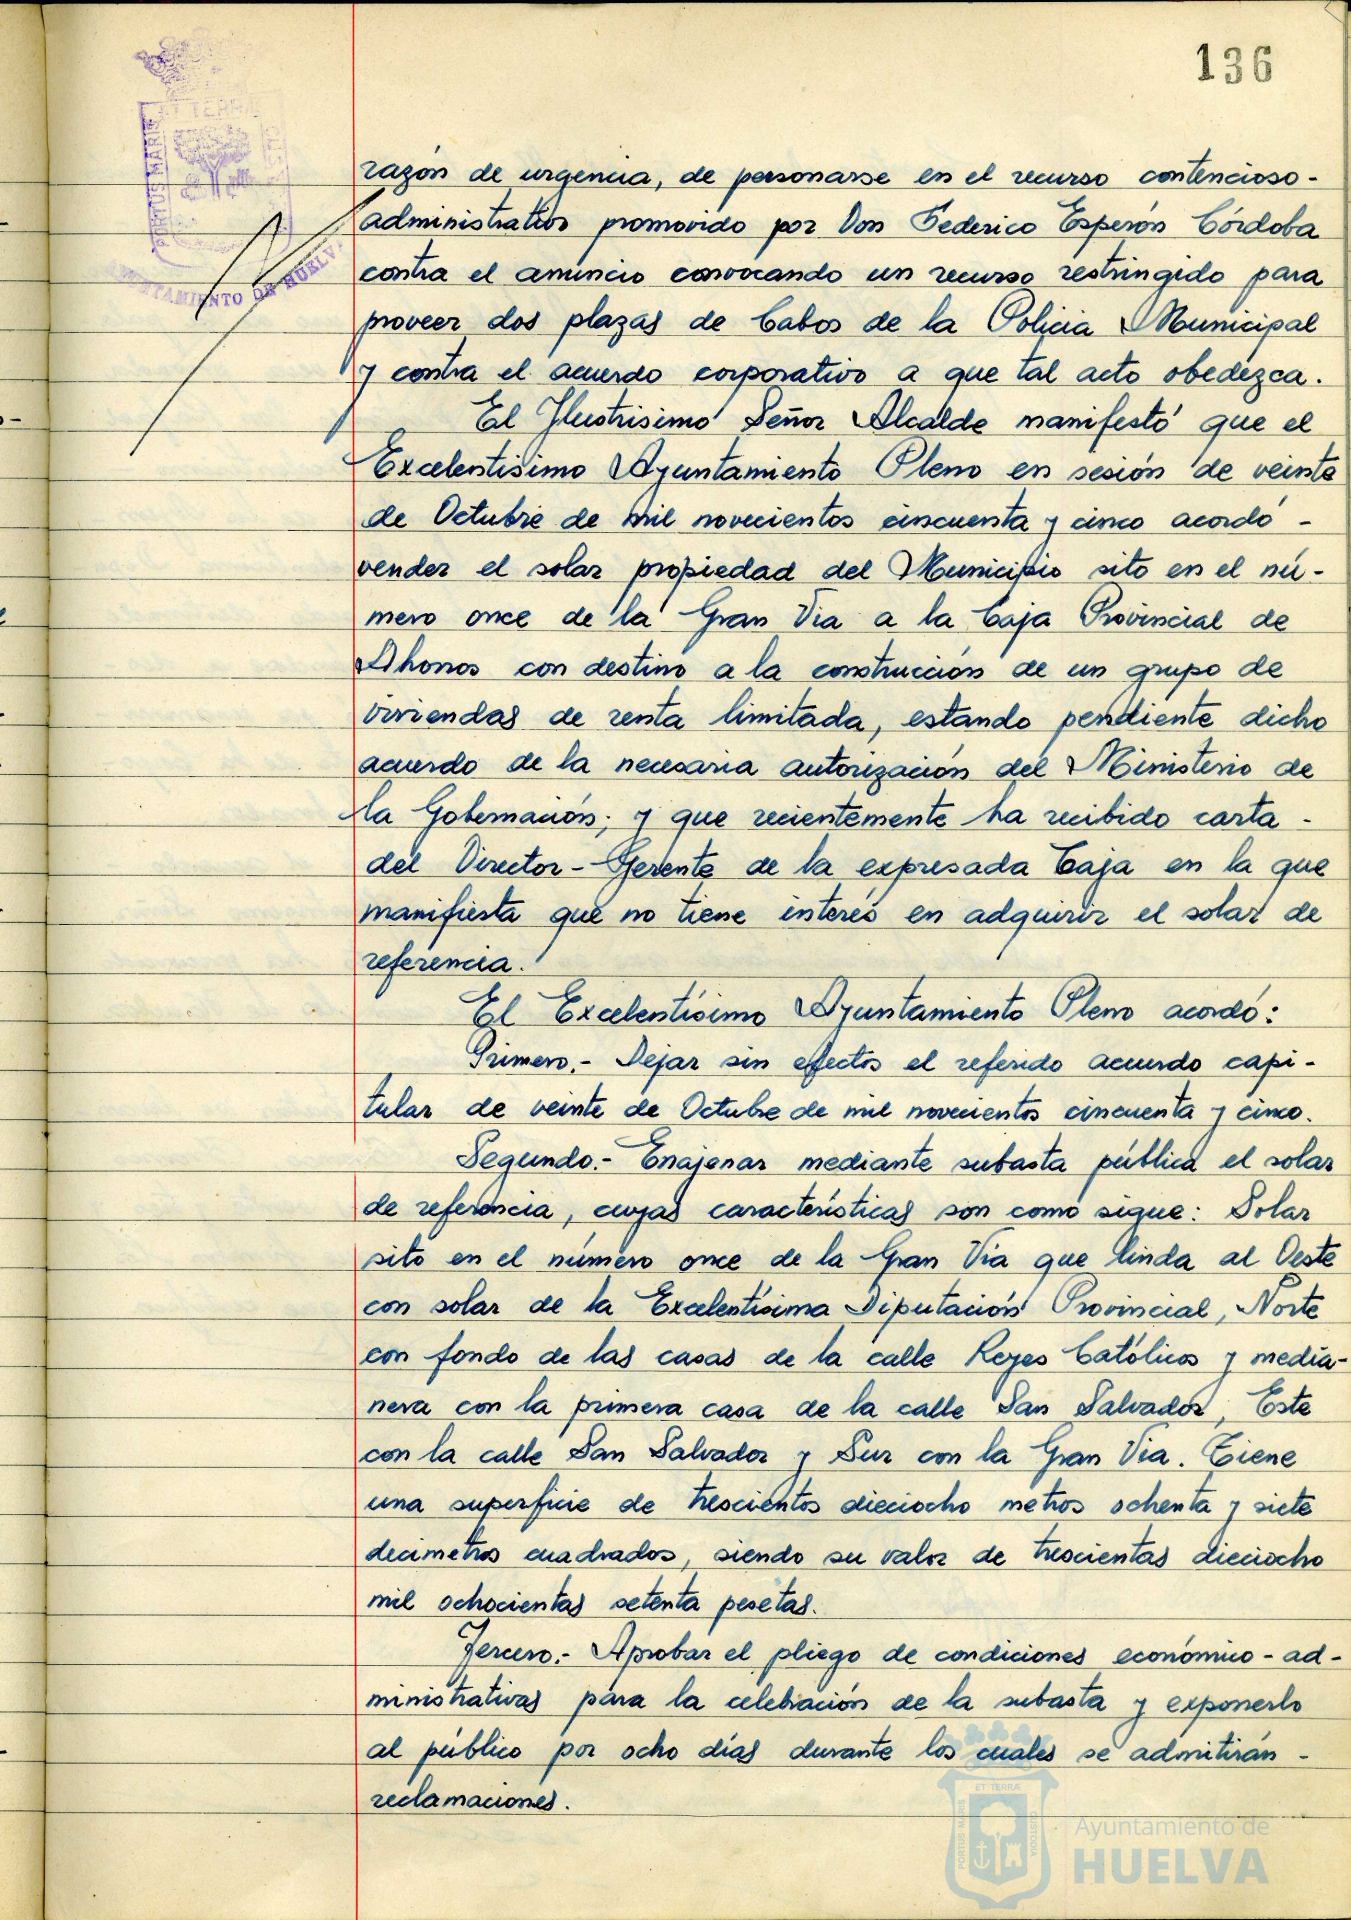 136
PORTUS MARIS ET TERRÆ CUSTODIA
AYUNTAMIENTO DE HUELVA
razón de urgencia, de personarse en el recurso contencioso-
administrativo promovido por Don Federico Esperón Córdoba
contra el anuncio convocando un recurso restringido para
proveer dos plazas de Cabos de la Policia Municipal
y contra el acuerdo corporativo a que tal acto obedezca.
El Ilustrisimo Señor Alcalde manifestó que el
Excelentisimo Ayuntamiento Pleno en sesión de veinte
de Octubre de mil novecientos cincuenta y cinco acordó -
vender el solar propiedad del Municipio sito en el nú-
mero once de la Gran Via a la Caja Provincial de
Ahorros con destino a la construcción de un grupo de
viviendas de renta limitada, estando pendiente dicho
acuerdo de la necesaria autorización del Ministerio de
la Gobernación; y que recientemente ha recibido carta -
del Director-Gerente de la expresada Caja en la que
manifiesta que no tiene interés en adquirir el solar de
referencia.
El Excelentísimo Ayuntamiento Pleno acordó:
Primero.- Dejar sin efectos el referido acuerdo capi-
tular de veinte de Octubre de mil novecientos cincuenta y cinco.
Segundo.- Enajenar mediante subasta pública el solar
de referencia, cuyas características son como sigue: Solar
sito en el número once de la Gran Vía que linda al Oeste
con solar de la Excelentísima Diputación Provincial, Norte
con fondo de las casas de la calle Reyes Católicos y media-
nera con la primera casa de la calle San Salvador, Este
con la calle San Salvador y Sur con la Gran Via. Tiene
una superficie de trescientos dieciocho metros ochenta y siete
decimetros cuadrados, siendo su valor de trescientas dieciocho
mil ochocientas setenta pesetas.
Tercero.- Aprobar el pliego de condiciones económico-ad-
ministrativas para la celebración de la subasta y exponerlo
al público por ocho días durante los cuales se admitirán -
reclamaciones.
PORTUS MARIS ET TERRÆ CUSTODIA
Ayuntamiento de
HUELVA